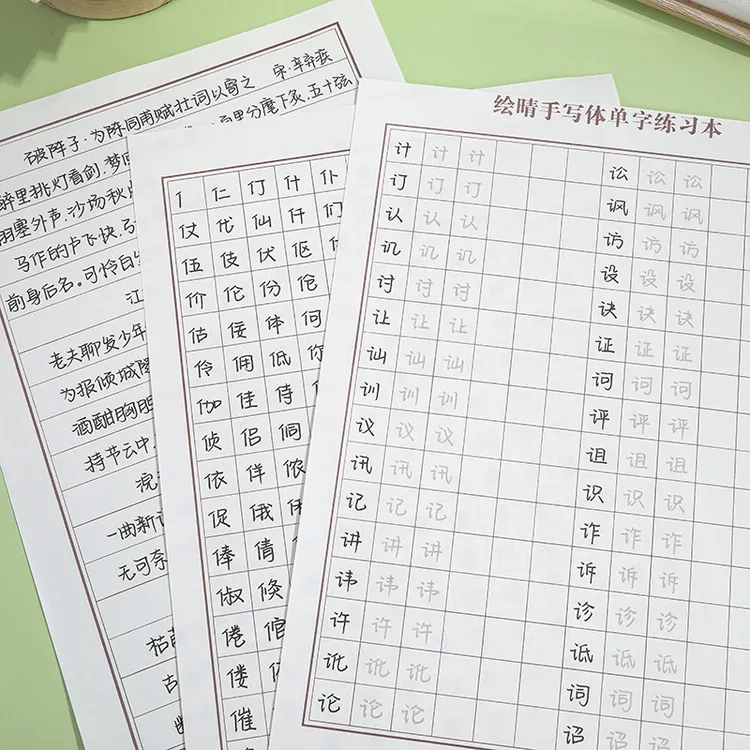 破阵子·为陈同甫赋壮词以寄之 宋·辛弃疾
醉里挑灯看剑,梦 里分麾下炙,五十弦
塞外声,沙场秋
马作的卢飞快,
前身后名。可怜白
江
老夫聊发少年
为报倾城
酒酣胸胆
持节云中
浣
一曲新
无可奈
枯
古
亻 仁 仃 什 仆
仗 仙 仟 们
伍 伎 伏 伛
价 伦 份
估 佞 体 何
伶 佣 低 你
伽 佳 侍
侦 侣 侗
依 佯 侬
促 俄
俸 倩
俶
倦 倌
偻
催
绘晴手写体单字练习本
计 计 计 讼 讼 讼
订 订 订 讽 讽 讽
认 认 认 访 访 访
讥 讥 讥 设 设 设
讨 讨 讨 诀 诀 诀
让 让 让 证 证 证
讪 讪 讪 诃 诃 诃
训 训 训 评 评 评
议 议 议 诅 诅 诅
讯 讯 讯 识 识 识
记 记 记 诈 诈 诈
讲 讲 讲 诉 诉 诉
讳 讳 讳 诊 诊 诊
许 许 许 诋 诋 诋
讹 讹 讹 词 词 词
论 论 论 诏 诏 诏